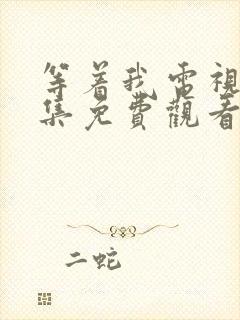 等着我電視
集免費觀看
二蛇